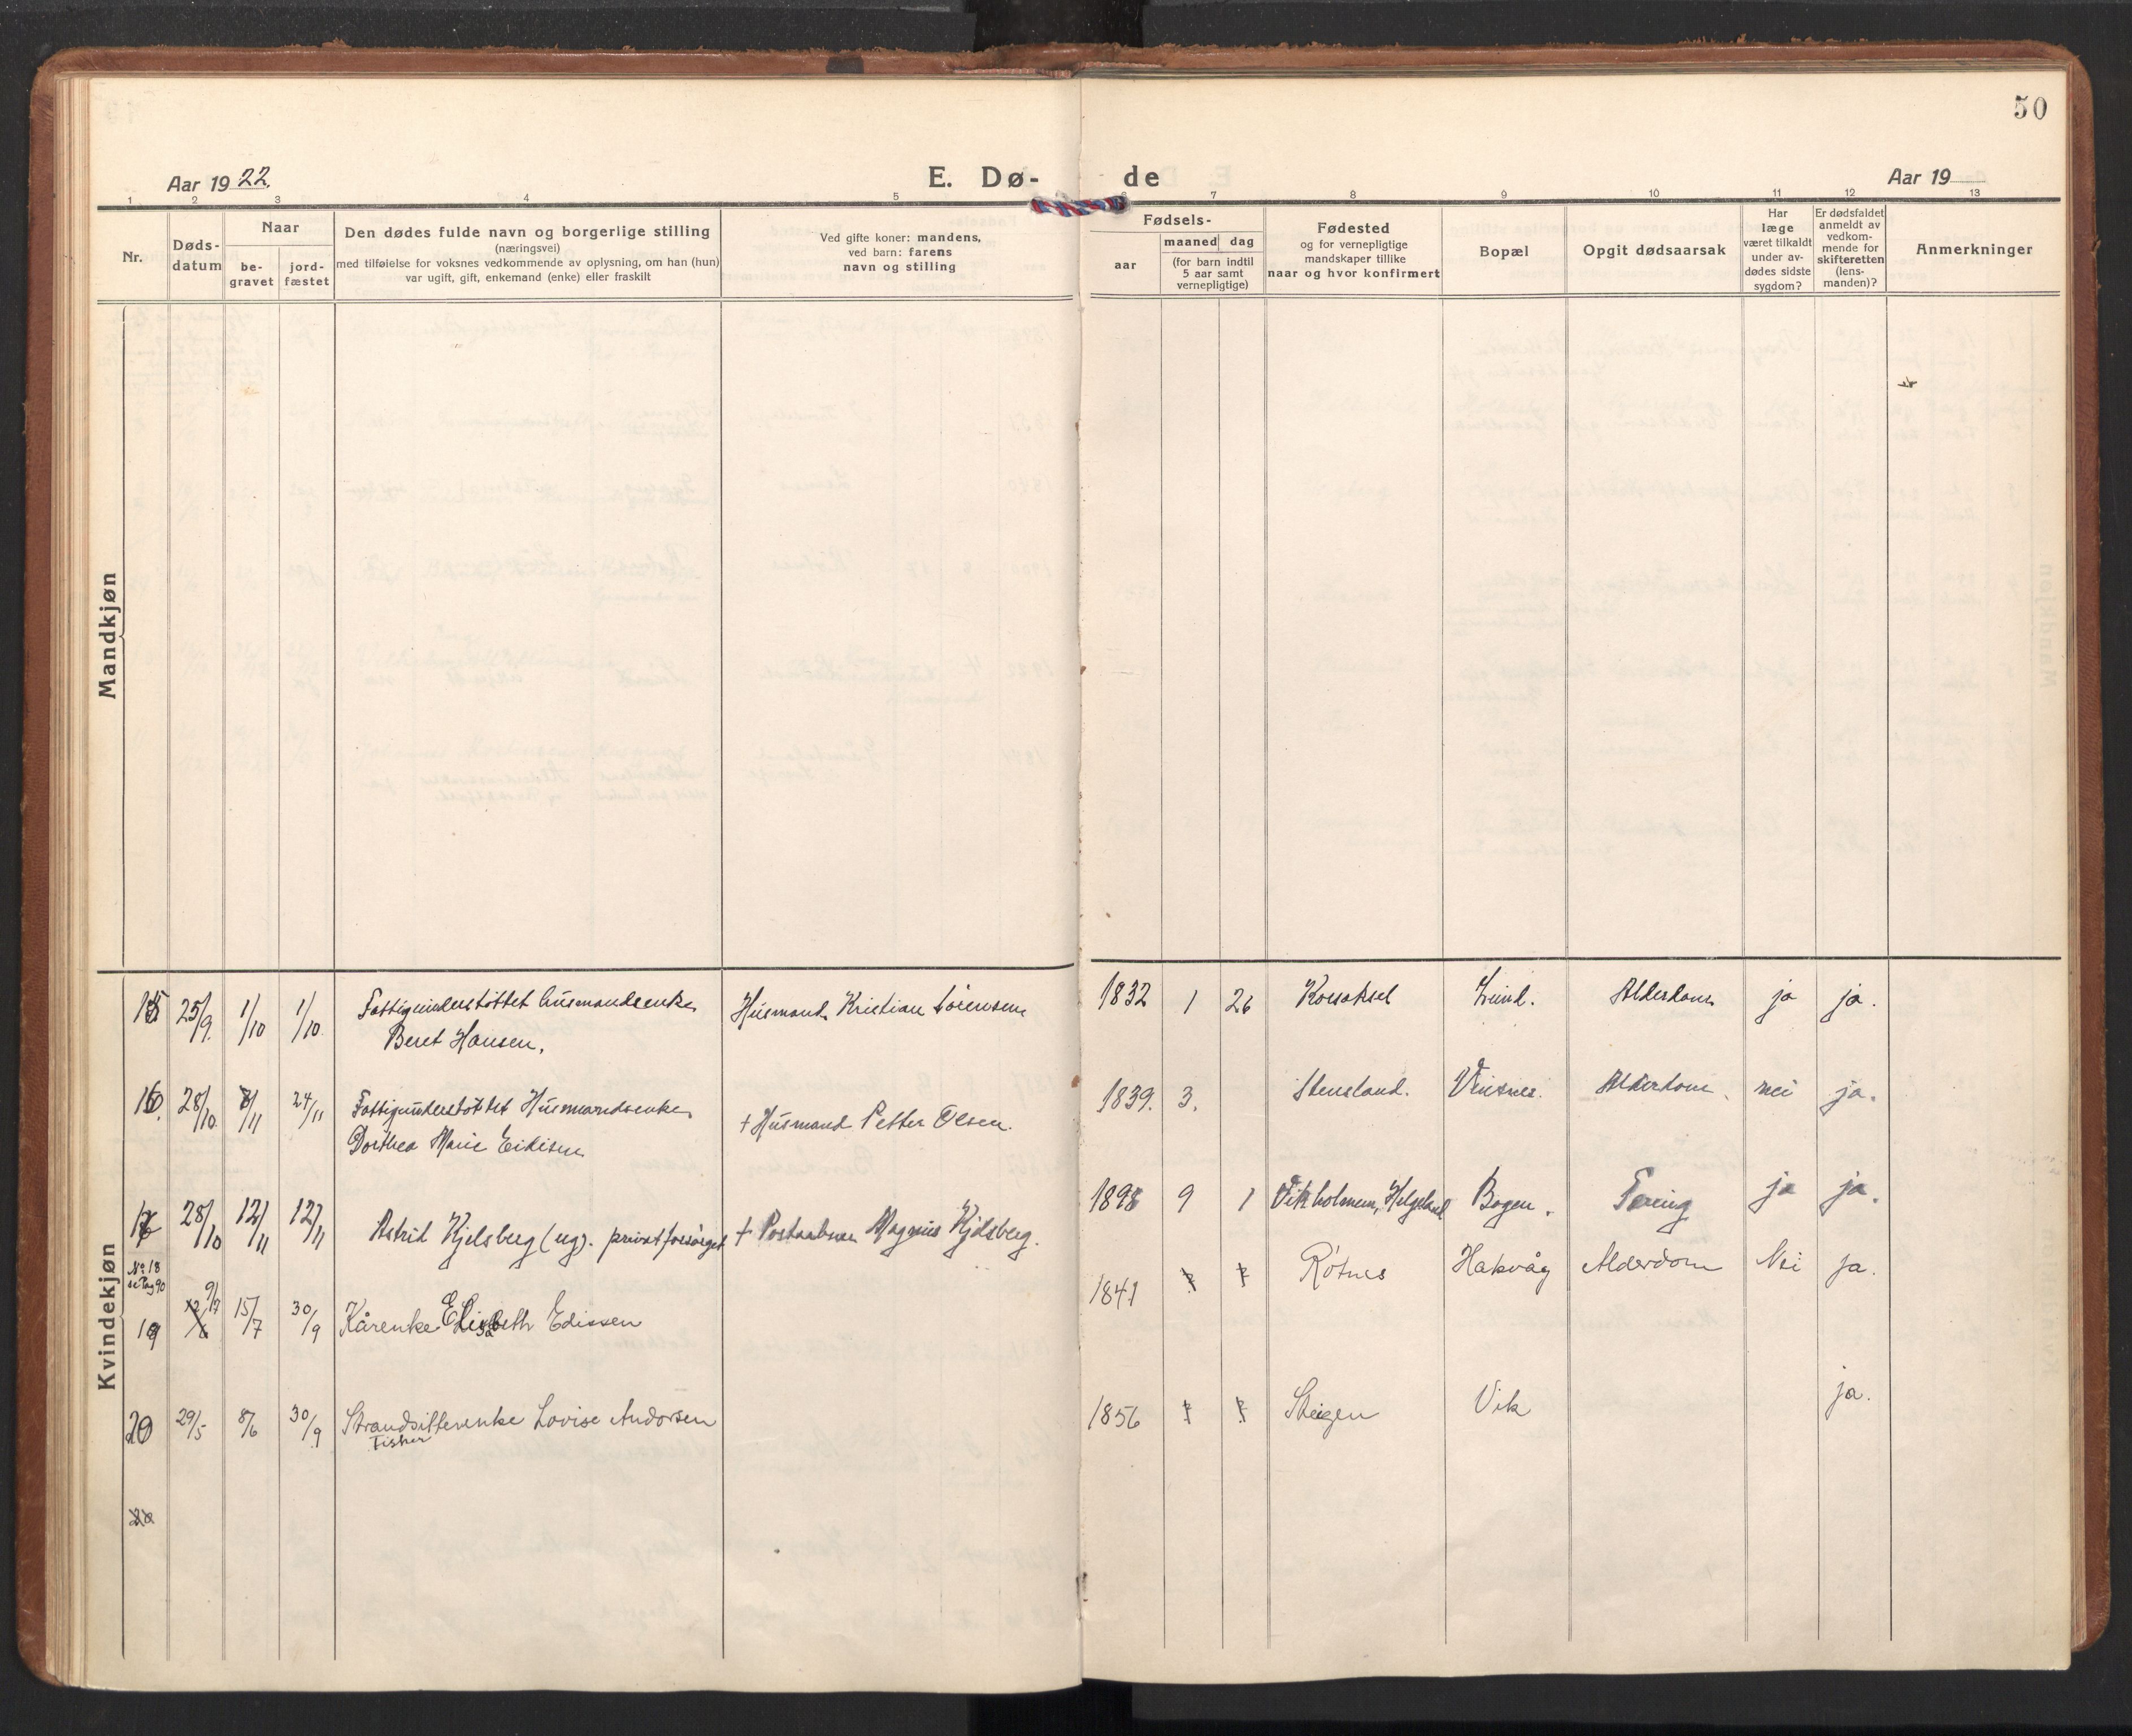 50
Aar 1922.
E. Dø-
de
Aar 19
1 2 3 4 5 6 7 8 9 10 11 12 13
Nr.
Døds-
datum
Naar
be-
gravet
jord-
fæstet
Den dødes fulde navn og borgerlige stilling
(næringsvei)
med tilføielse for voksnes vedkommende av oplysning, om han (hun)
var ugift, gift, enkemand (enke) eller fraskilt
Ved gifte koner: mandens,
ved barn: farens
navn og stilling
Fødsels-
aar
maaned dag
(for barn indtil
5 aar samt
vernepligtige)
Fødested
og for vernepligtige
mandskaper tillike
naar og hvor konfirmert
Bopæl
Opgit dødsaarsak
Har
læge
været tilkaldt
under av-
dødes sidste
sygdom?
Er dødsfaldet
anmeldt av
vedkom-
mende for
skifteretten
(lens-
manden)?
Anmerkninger
Mandkjøn
Kvindekjøn
15 25/9. 1/10 1/10. Fattigunderstøttet husmandsenke Husmand Kristian Sörensen 1832 1 26 Korsaksel Lund. Alderdom ja ja.
Beret Hansen.
16. 28/10. 8/11 24/11 Fattigunderstöttet Husmandsenke + Husmand Petter Olsen. 1839. 3. Stensland. Vinsnes. Alderdom. nei ja.
Dorthea Marie Eidisen
17 28/10 12/11 12/11 Astrid Kjelsberg (ug). privat forsörget + Postaabner Magnus Kjelsberg. 1898 9 1 Vikholmen, Helgeland Bogen. Tæring ja ja.
No 18
se Pag 90
19 9/7 15/7 30/9 Kårenke Elisbeth Edissen 1841 ? ? Rotnes Hakvåg Alderdom Nei ja.
20 29/5 8/6 30/9 Strandsitterenke Lovise Andorsen 1856 ? ? Steigen Vik ja.
Fisker
20